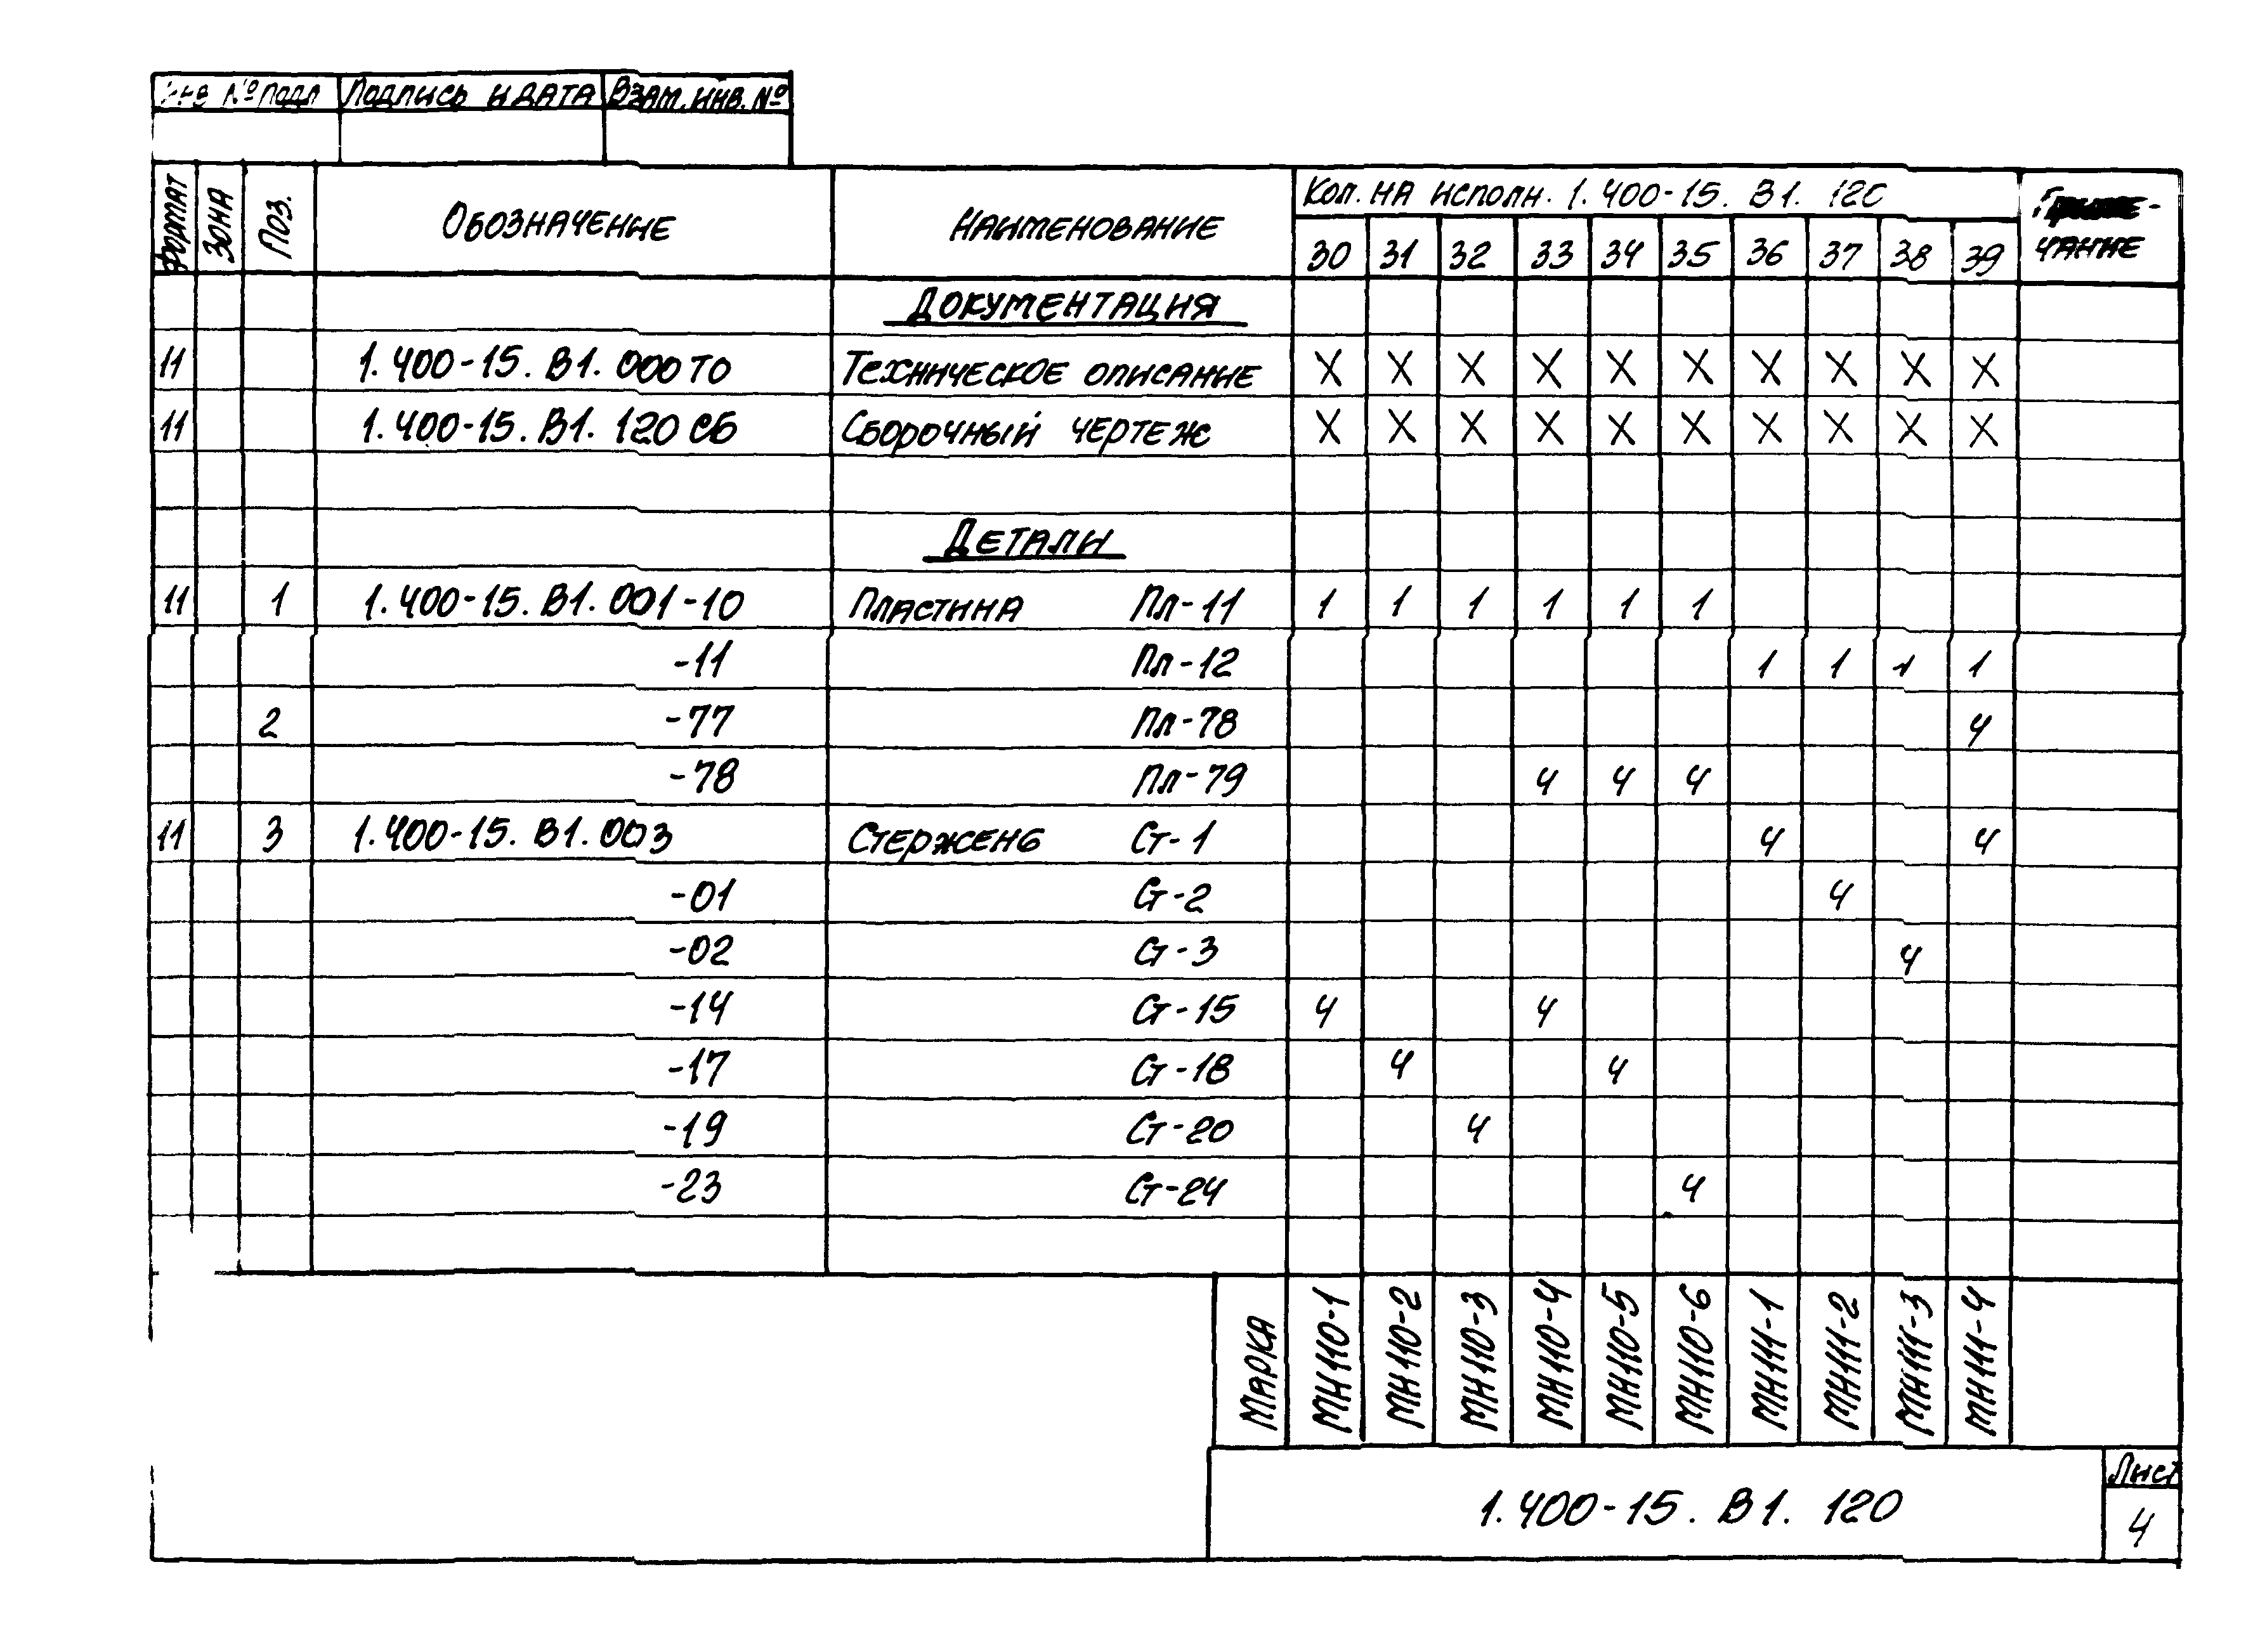 Инв № подл Подпись и дата Взам. инв. №
Формат Зона Поз. Обозначение Наименование Кол. на исполн. 1.400-15. В1. 120 Приме-
30 31 32 33 34 35 36 37 38 39 чание
Документация
11 1.400-15. В1. 000 ТО Техническое описание X X X X X X X X X X
11 1.400-15. В1. 120 СБ Сборочный чертеж X X X X X X X X X X
Детали
11 1 1.400-15. В1. 001-10 Пластина Пл-11 1 1 1 1 1 1
-11 Пл-12 1 1 1 1
2 -77 Пл-78 4
-78 Пл-79 4 4 4
11 3 1.400-15. В1. 003 Стержень Ст-1 4 4
-01 Ст-2 4
-02 Ст-3 4
-14 Ст-15 4 4
-17 Ст-18 4 4
-19 Ст-20 4
-23 Ст-24 4
Марка МН110-1 МН110-2 МН110-3 МН110-4 МН110-5 МН110-6 МН111-1 МН111-2 МН111-3 МН111-4
1.400-15. В1. 120
Лист
4